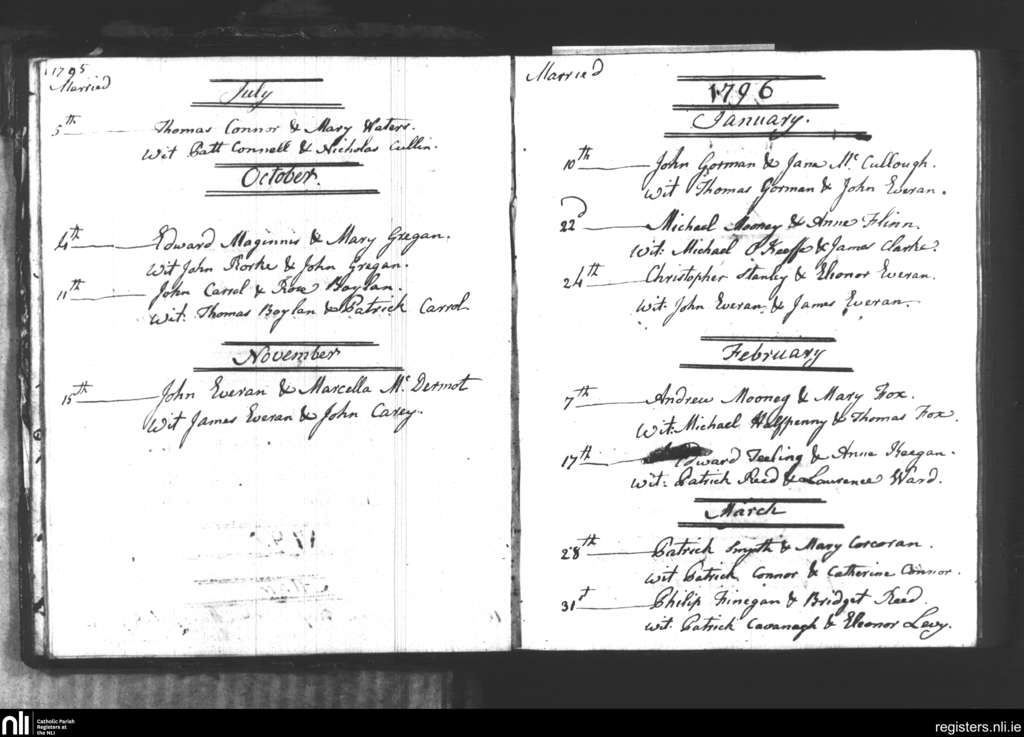 1795
Married
July
5th Thomas Connor & Mary Waters.
Wit Patt Connell & Nicholas Cullin.
October.
4th Edward Maginnis & Mary Gregan.
Wit John Rorke & John Gregan.
11th John Carrol & Rose Boylan.
Wit: Thomas Boylan & Patrick Carrol
November
15th John Everan & Marcella Mc Dermot
Wit James Everan & John Carey.
Married
1796
January.
10th John Gorman & Jane Mc Cullough.
Wit Thomas Gorman & John Everan.
22d Michael Mooney & Anne Flinn.
Wit: Michael O Keeffe & James Clarke.
24th Christopher Stanly & Eleonor Everan.
Wit: John Everan & James Everan.
February
7th Andrew Mooney & Mary Fox.
Wit: Michael Halfpenny & Thomas Fox.
17th Edward Teeling & Anne Keegan.
Wit: Patrick Reed & Lawrence Ward.
March
28th Patrick Smyth & Mary Corcoran.
Wit Patrick Connor & Catherine Connor.
31st Philip Finegan & Bridget Reed.
Wit: Patrick Cavanagh & Eleonor Levy.
nli
Catholic Parish
Registers at
the NLI
registers.nli.ie